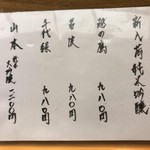 新入荷純米大吟醸
鶴の齢
若波 九八〇円
千代緑 九八〇円
山本 純米大吟醸 一二〇〇円